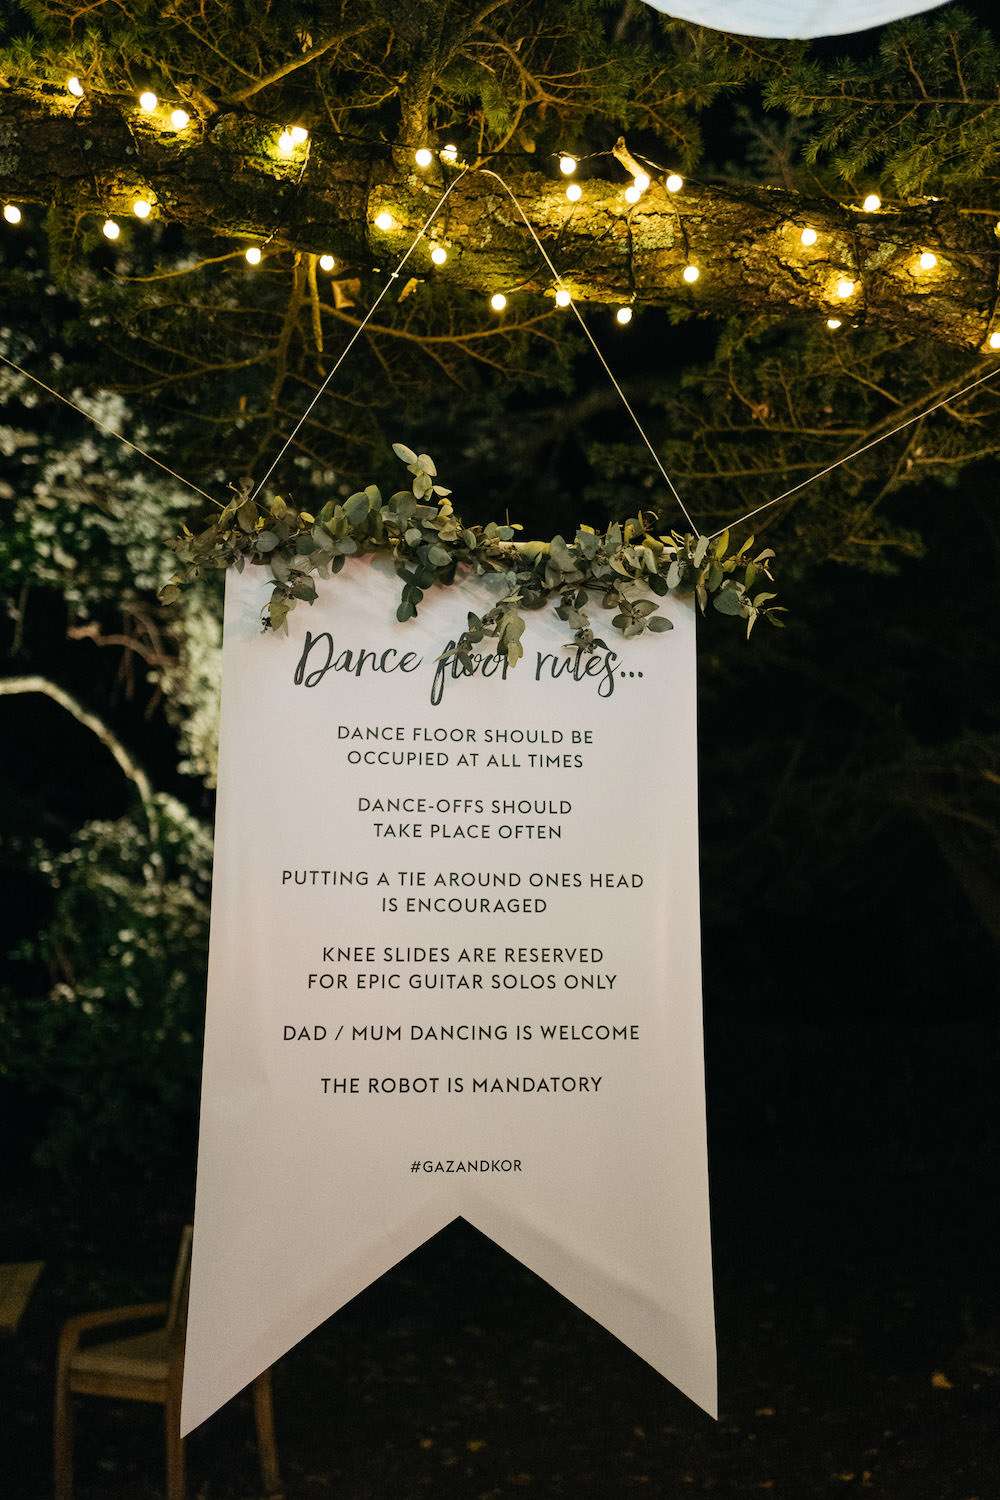 Dance floor rules...
DANCE FLOOR SHOULD BE
OCCUPIED AT ALL TIMES
DANCE-OFFS SHOULD
TAKE PLACE OFTEN
PUTTING A TIE AROUND ONES HEAD
IS ENCOURAGED
KNEE SLIDES ARE RESERVED
FOR EPIC GUITAR SOLOS ONLY
DAD / MUM DANCING IS WELCOME
THE ROBOT IS MANDATORY
#GAZANDKOR